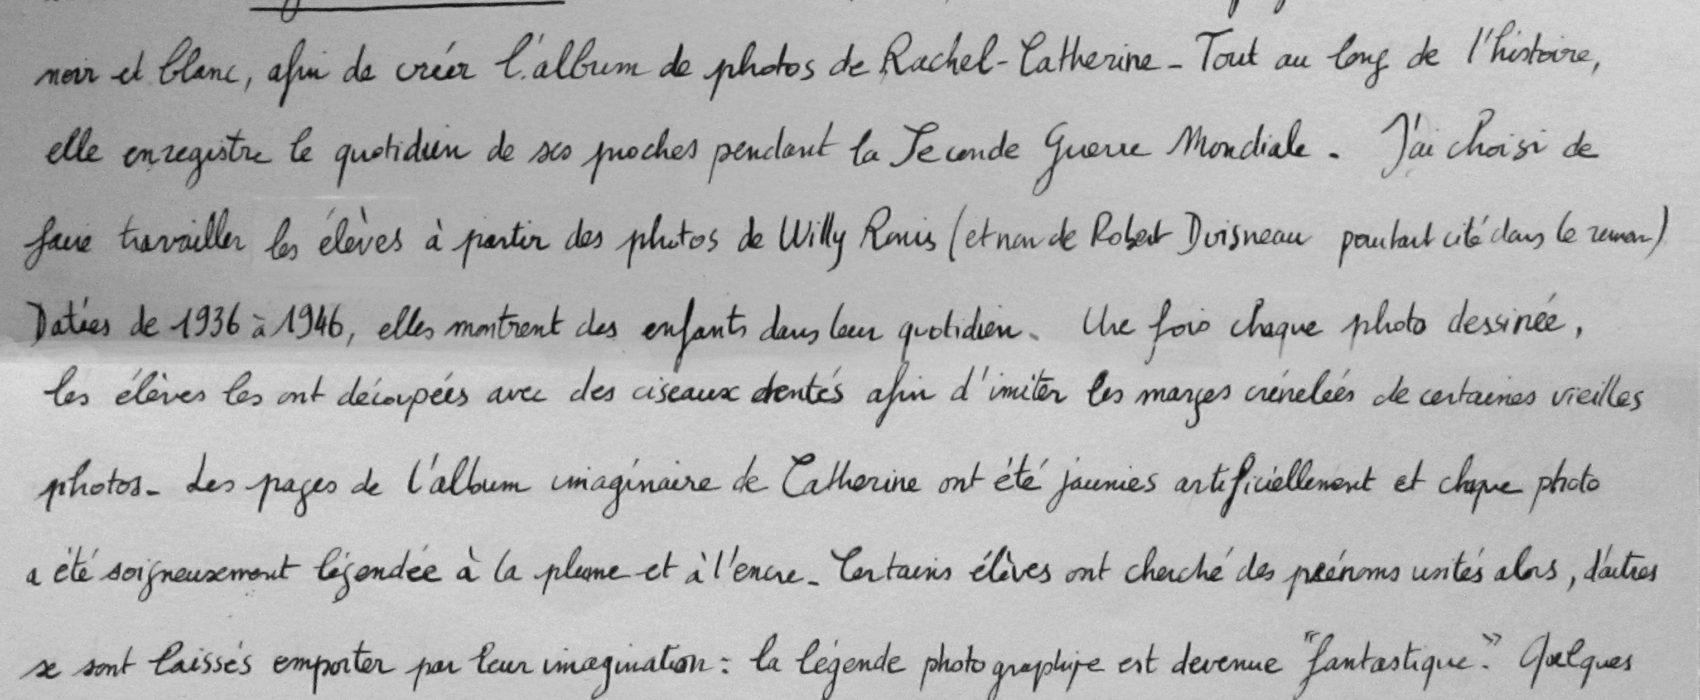 noir et blanc, afin de créer l'album de photos de Rachel-Catherine - Tout au long de l'histoire,
elle enregistre le quotidien de ses proches pendant la Seconde Guerre Mondiale. J'ai choisi de
faire travailler les élèves à partir des photos de Willy Ronis (et non de Robert Doisneau pourtant cité dans le roman)
Datées de 1936 à 1946, elles montrent des enfants dans leur quotidien. Une fois chaque photo dessinée,
les élèves les ont découpées avec des ciseaux dentés afin d'imiter les marges crénelées de certaines vieilles
photos - Les pages de l'album imaginaire de Catherine ont été jaunies artificiellement et chaque photo
a été soigneusement légendée à la plume et à l'encre - Certains élèves ont cherché des prénoms usités alors, d'autres
se sont laissés emporter par leur imagination : la légende photographique est devenue "fantastique". Quelques